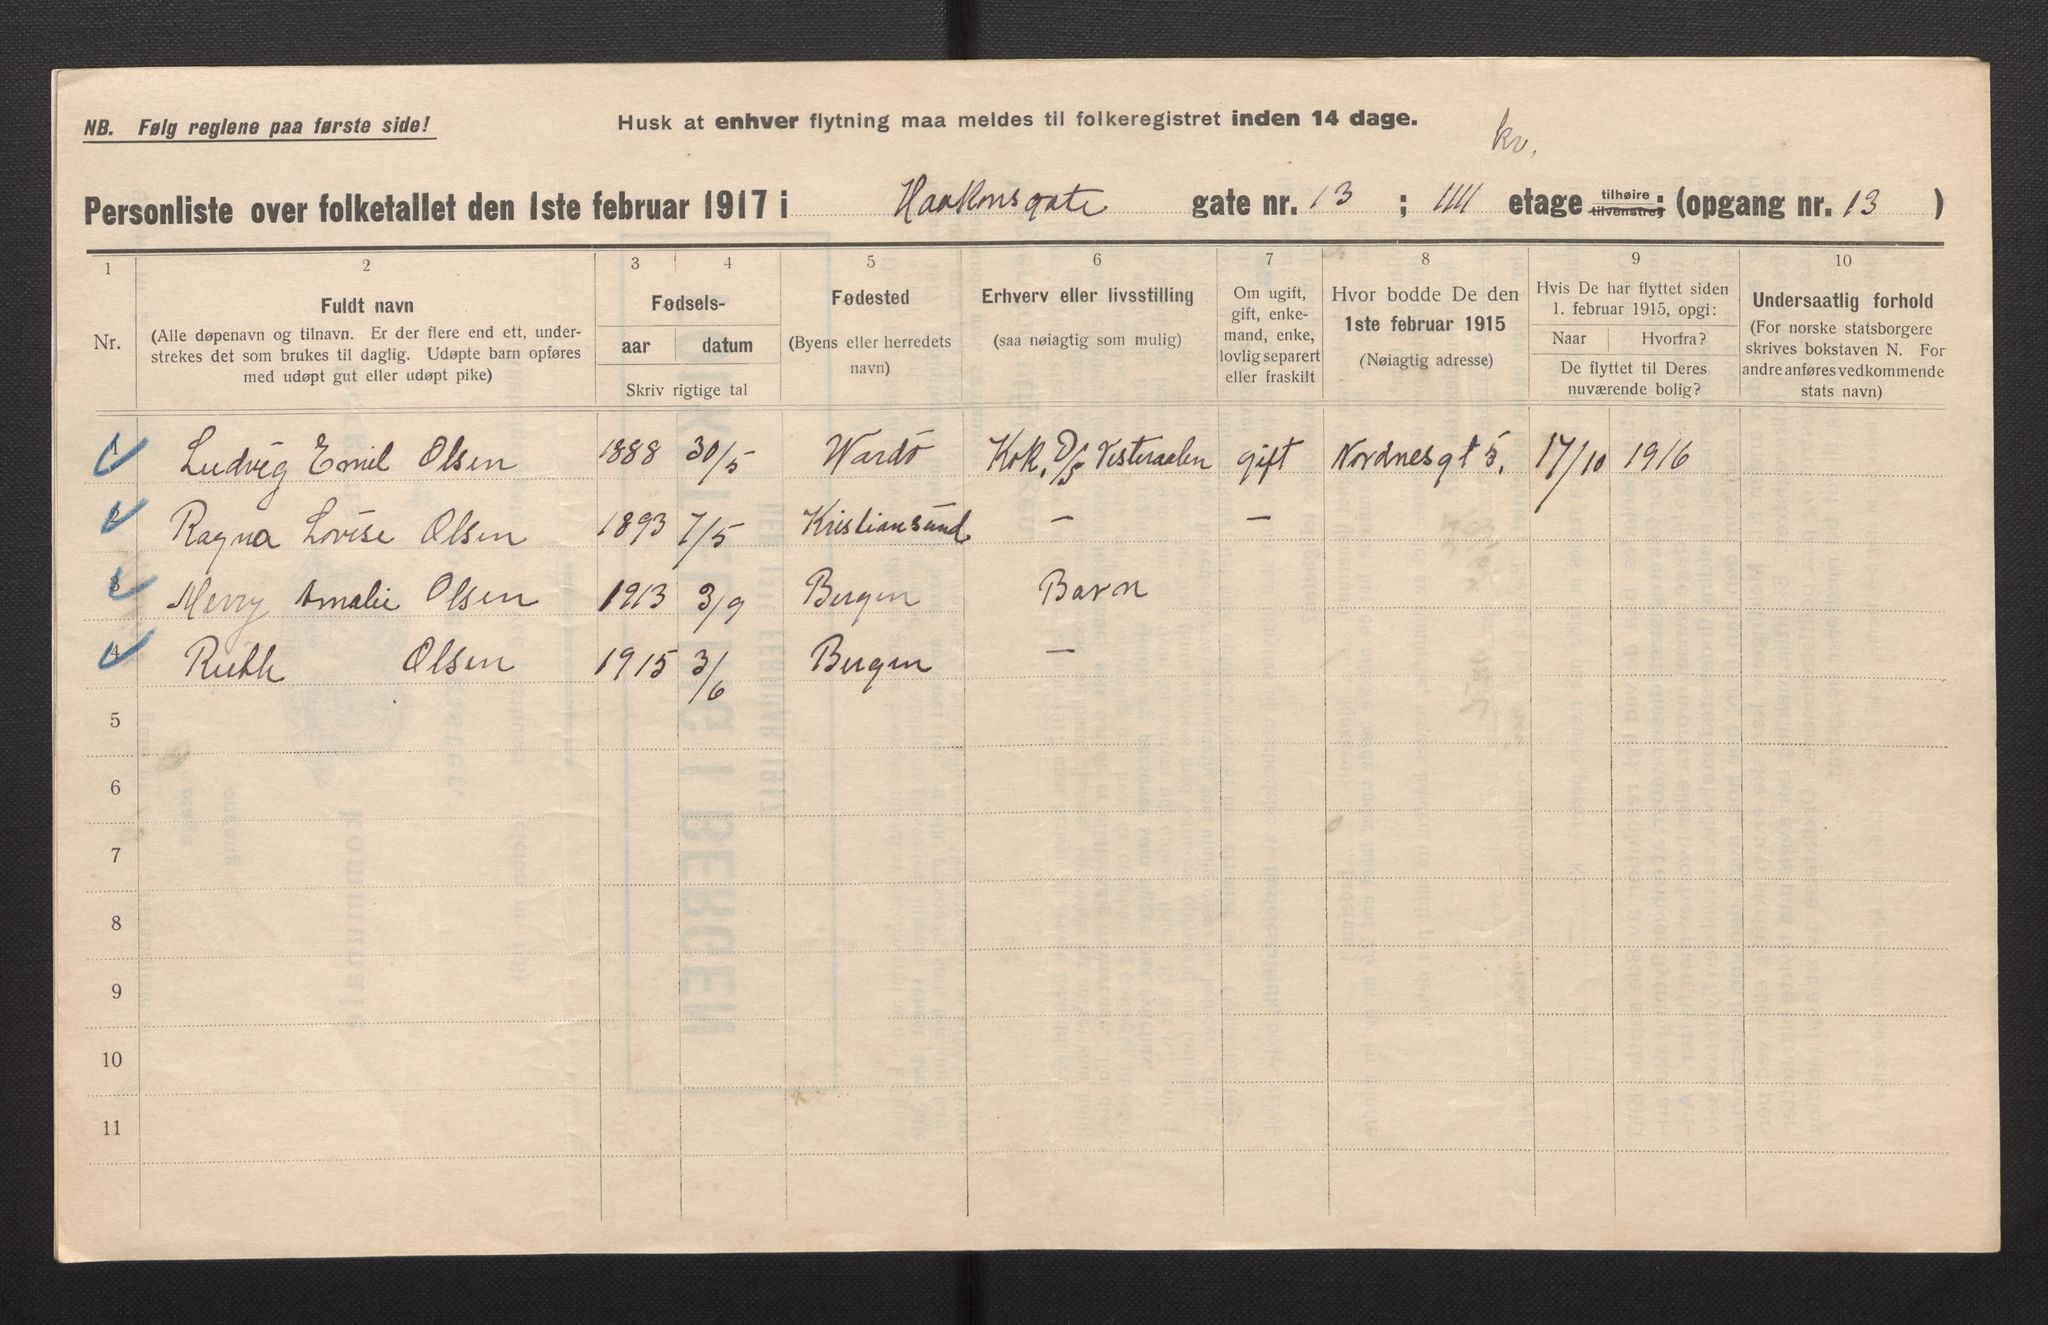 NB. Følg reglene paa første side!
Husk at enhver flytning maa meldes til folkeregistret inden 14 dage.
kv.
Personliste over folketallet den 1ste februar 1917 i Haakonsgate gate nr. 13 ; IIII etage tilhøire tilvenstre; (opgang nr. 13 )
1 2 3 4 5 6 7 8 9 10
Nr.
Fuldt navn
(Alle døpenavn og tilnavn. Er der flere end ett, under-
strekes det som brukes til daglig. Udøpte barn opføres
med udøpt gut eller udøpt pike)
Fødsels-
aar datum
Skriv rigtige tal
Fødested
(Byens eller herredets
navn)
Erhverv eller livsstilling
(saa nøiagtig som mulig)
Om ugift,
gift, enke-
mand, enke,
lovlig separert
eller fraskilt
Hvor bodde De den
1ste februar 1915
(Nøiagtig adresse)
Hvis De har flyttet siden
1. februar 1915, opgi:
Naar Hvorfra?
De flyttet til Deres
nuværende bolig?
Undersaatlig forhold
(For norske statsborgere
skrives bokstaven N. For
andre anføres vedkommende
stats navn)
1 Ludvig Emil Olsen 1888 30/5 Wardö Kok, D/S Vesteraalen gift Nordnesgt 5. 17/10 1916
2 Ragna Lovise Olsen 1893 7/5 Kristiansund — —
3 Merry Amalie Olsen 1913 3/9 Bergen Barn
4 Ruth Olsen 1915 3/6 Bergen —
5
6
7
8
9
10
11